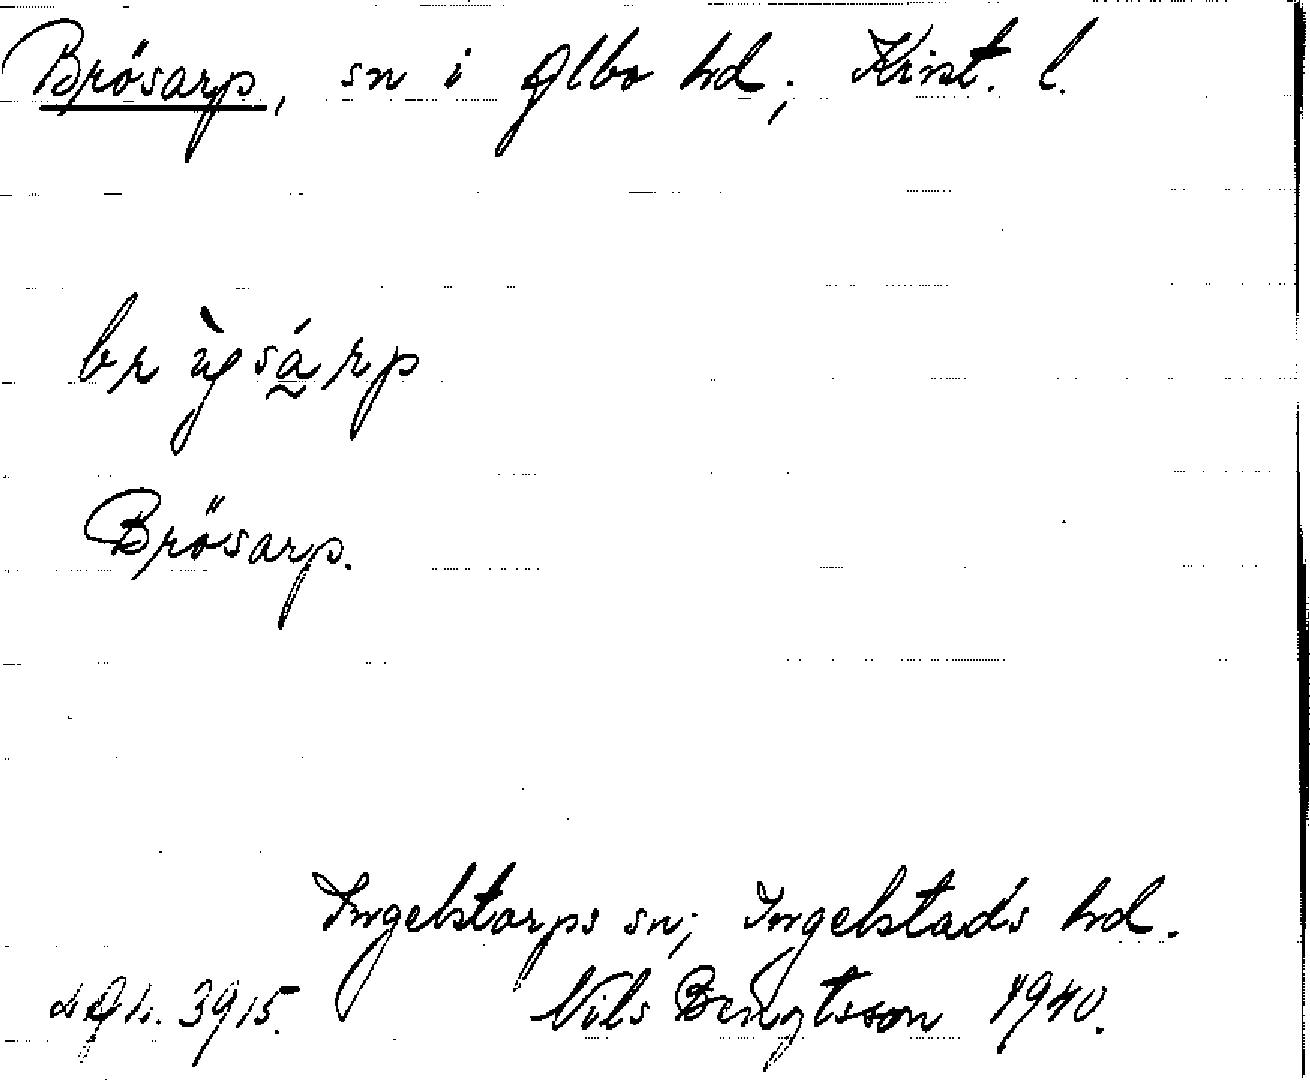 Brösarp, sn i Albo hd; Krist. l.
Brösarp.
Ingelstorps sn; Ingelstads hd.
3915. Nils Bengtsson 1940.